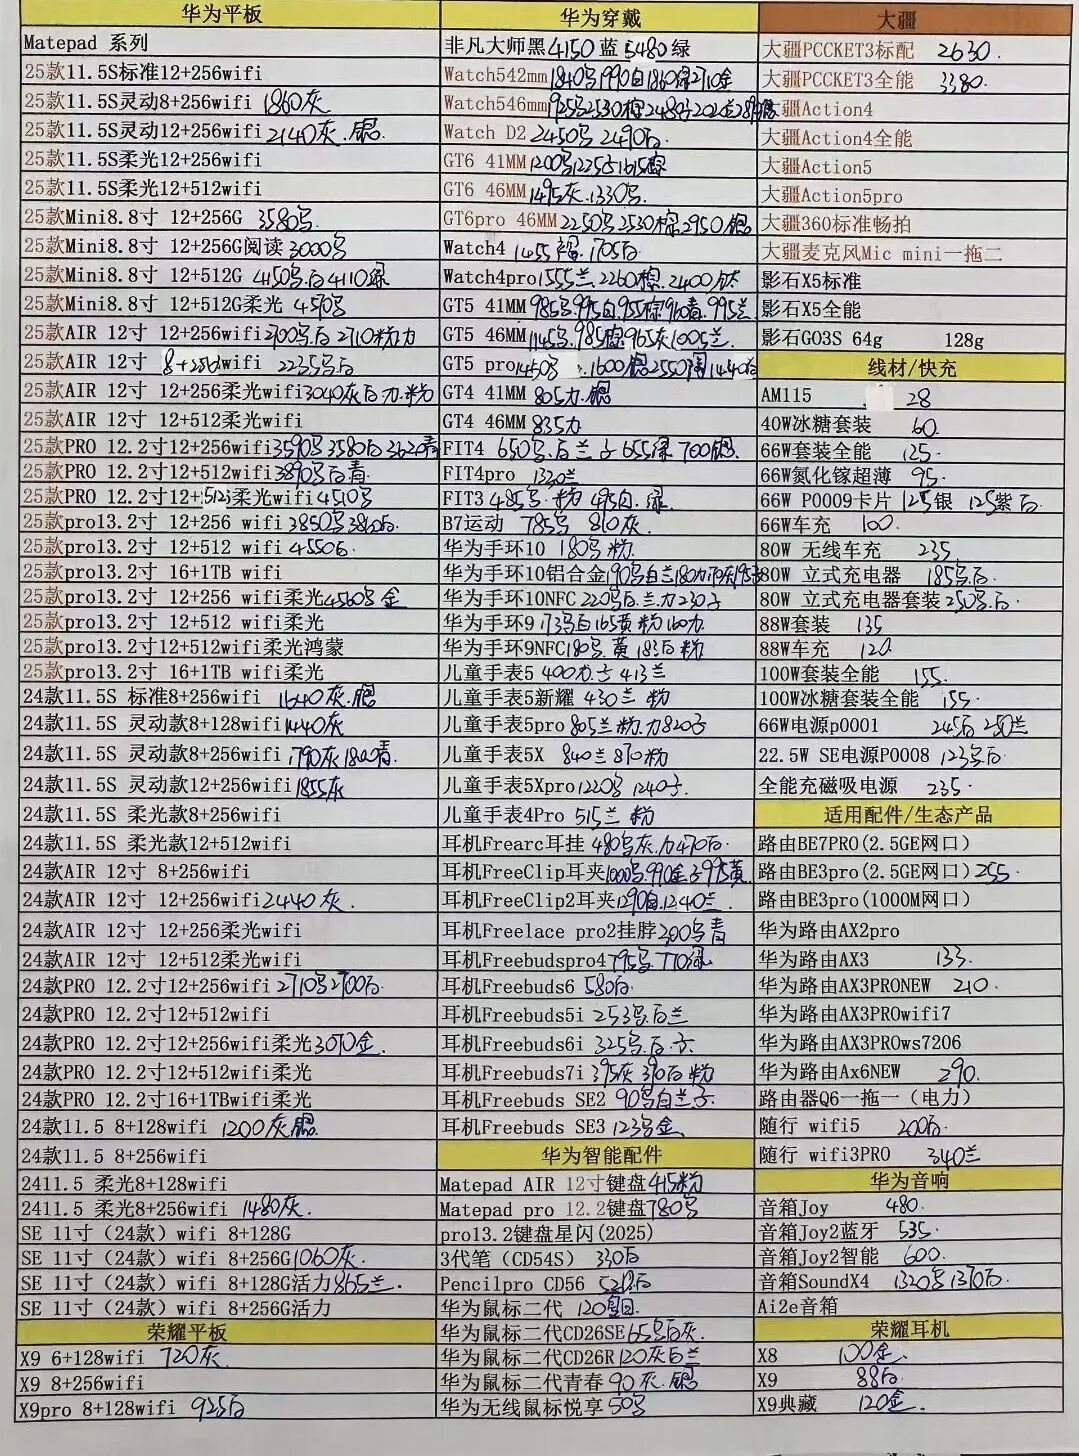 华为平板
Matepad 系列
25款11.5S标准12+256wifi
25款11.5S灵动8+256wifi 1860灰
25款11.5S灵动12+256wifi 2140灰.银
25款11.5S柔光12+256wifi
25款11.5S柔光12+512wifi
25款Mini8.8寸 12+256G 3580
25款Mini8.8寸 12+256G阅读 3000
25款Mini8.8寸 12+512G 4150 4110绿
25款Mini8.8寸 12+512G柔光
25款AIR 12寸 12+256wifi 2700 2710粉
25款AIR 12寸 8+256wifi 2235
25款AIR 12寸 12+256柔光wifi 3040灰 粉
25款AIR 12寸 12+512柔光wifi
25款PRO 12.2寸12+256wifi 3590 3580 3620青
25款PRO 12.2寸12+512wifi 3890 青
25款PRO 12.2寸12+512柔光wifi 4510
25款pro13.2寸 12+256 wifi 3850 3860
25款pro13.2寸 12+512 wifi 4550
25款pro13.2寸 16+1TB wifi
25款pro13.2寸 12+256 wifi柔光 4560 金
25款pro13.2寸 12+512 wifi柔光
25款pro13.2寸12+512wifi柔光鸿蒙
25款pro13.2寸 16+1TB wifi柔光
24款11.5S 标准8+256wifi 1640灰.银
24款11.5S 灵动款8+128wifi 1440灰
24款11.5S 灵动款8+256wifi 1790灰 1800青
24款11.5S 灵动款12+256wifi 1855灰
24款11.5S 柔光款8+256wifi
24款11.5S 柔光款12+512wifi
24款AIR 12寸 8+256wifi
24款AIR 12寸 12+256wifi 2440灰.
24款AIR 12寸 12+256柔光wifi
24款AIR 12寸 12+512柔光wifi
24款PRO 12.2寸12+256wifi 2710 2700
24款PRO 12.2寸12+512wifi
24款PRO 12.2寸12+256wifi柔光 3070金.
24款PRO 12.2寸12+512wifi柔光
24款PRO 12.2寸16+1TBwifi柔光
24款11.5 8+128wifi 1200灰银.
24款11.5 8+256wifi
2411.5 柔光8+128wifi
2411.5 柔光8+256wifi 1480灰.
SE 11寸（24款）wifi 8+128G
SE 11寸（24款）wifi 8+256G 1060灰.
SE 11寸（24款）wifi 8+128G活力 865兰.
SE 11寸（24款）wifi 8+256G活力
荣耀平板
X9 6+128wifi 720灰
X9 8+256wifi
X9pro 8+128wifi 925
华为穿戴
非凡大师黑4150蓝 5480绿
Watch542mm 1840 1990白1860绿2710金
Watch546mm
Watch D2 2450 2490
GT6 41MM 1200 1225 1615
GT6 46MM 1495灰.1330
GT6pro 46MM 2250 2530棕2950银
Watch4 1455 1705
Watch4pro 1555兰.2260棕.2400钛
GT5 41MM 985 995白.955棕960青.995兰
GT5 46MM 1145 985棕.965灰1005兰
GT5 pro 1450 1600银2550 1440
GT4 41MM 805 银
GT4 46MM 835
FIT4 650 兰 655绿 700银.
FIT4pro 1320兰
FIT3 485 粉 495白.绿
B7运动 785 810灰.
华为手环10 180 粉.
华为手环10铝合金 190 白兰180
华为手环10NFC 220 兰 230
华为手环9 173 白165黄粉160
华为手环9NFC 180 黄 183 粉
儿童手表5 400 413兰
儿童手表5新耀 430兰 粉
儿童手表5pro 805兰粉 820
儿童手表5X 840兰 870粉
儿童手表5Xpro 1220 1240
儿童手表4Pro 515兰 粉
耳机Frearc耳挂 480 灰 470
耳机FreeClip耳夹 1000 990金 995黄
耳机FreeClip2耳夹 1290 1240兰.
耳机Freelace pro2挂脖 300 青
耳机Freebudspro4 795 770绿
耳机Freebuds6 580
耳机Freebuds5i 253 兰
耳机Freebuds6i 325
耳机Freebuds7i 395灰 390 粉
耳机Freebuds SE2 90 白兰
耳机Freebuds SE3 123 金
华为智能配件
Matepad AIR 12寸键盘 415粉
Matepad pro 12.2键盘 780
pro13.2键盘星闪(2025)
3代笔（CD54S） 330
Pencilpro CD56
华为鼠标二代 120
华为鼠标二代CD26SE 65 灰.
华为鼠标二代CD26R 120灰 兰
华为鼠标二代青春 90灰.银
华为无线鼠标悦享 50
大疆
大疆PCCKET3标配 2630.
大疆PCCKET3全能 3380.
大疆Action4
大疆Action4全能
大疆Action5
大疆Action5pro
大疆360标准畅拍
大疆麦克风Mic mini一拖二
影石X5标准
影石X5全能
影石GO3S 64g 128g
线材/快充
AM115 28
40W冰糖套装 60.
66W套装全能 125.
66W氮化镓超薄 95.
66W P0009卡片 125银 125紫
66W车充 100.
80W 无线车充 235.
80W 立式充电器 185
80W 立式充电器套装 250
88W套装 135
88W车充 120
100W套装全能 155.
100W冰糖套装全能 155.
66W电源p0001 245 250兰
22.5W SE电源P0008 123
全能充磁吸电源 235.
适用配件/生态产品
路由BE7PRO(2.5GE网口)
路由BE3pro(2.5GE网口) 255.
路由BE3pro(1000M网口)
华为路由AX2pro
华为路由AX3 133.
华为路由AX3PRONEW 210.
华为路由AX3PROwifi7
华为路由AX3PROws7206
华为路由Ax6NEW 290.
路由器Q6一拖一（电力）
随行 wifi5 200
随行 wifi3PRO 340兰
华为音响
音箱Joy 480.
音箱Joy2蓝牙 535.
音箱Joy2智能 600.
音箱SoundX4 1320 1370
Ai2e音箱
荣耀耳机
X8 100金.
X9 88
X9典藏 120金.